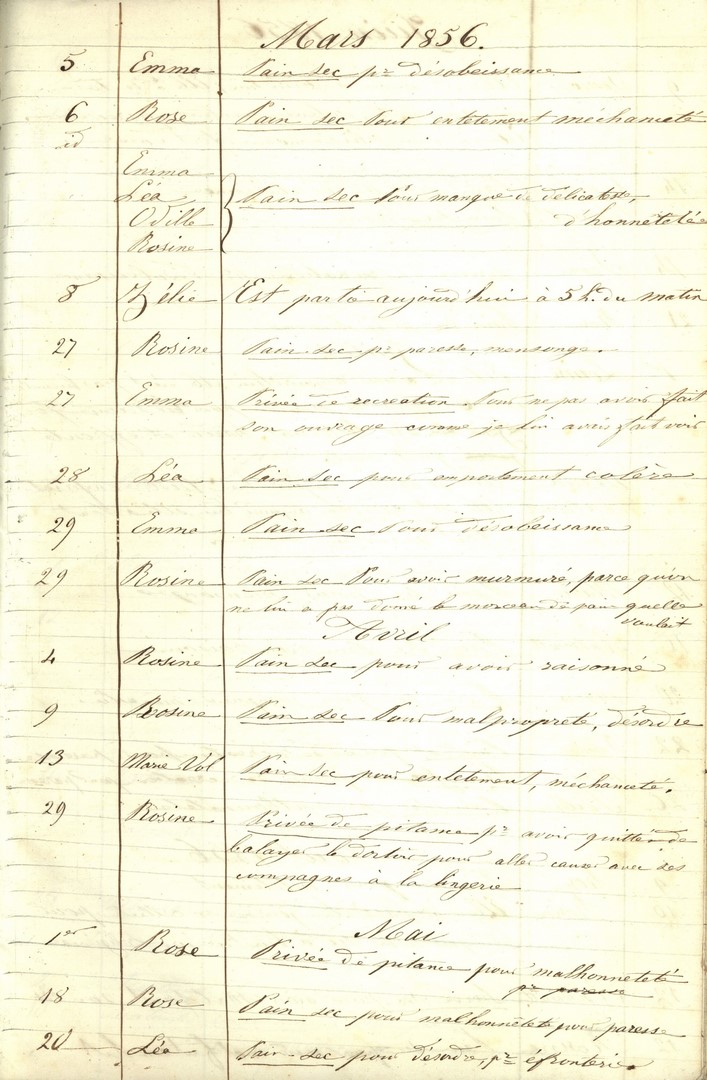 Mars 1856.
5 Emma Pain sec pr désobeissance
6 Rose Pain sec Pour entetement méchanceté
id
Emma
Léa Pain sec Pour manque de délicatesse,
Odille d'honnêtetée
Rosine
8 Zélie Est partie aujourd'hui à 5 h. du matin
27 Rosine Pain sec pr paresse, mensonge.
27 Emma Privée de recreation Pour ne pas avoir fait
son ouvrage comme je lui avais fait voir
28 Léa Pain sec pour emportement colère
29 Emma Pain sec Pour désobeissance
29 Rosine Pain sec Pour avoir murmuré, parce qu'on
ne lui a pas donné le morceau de pain quelle
voulait
Avril
4 Rosine Pain sec pour avoir raisonné
9 Rosine Pain sec Pour malpropreté, désordre
13 Marie Vol Pain sec pour entetement, méchanceté.
29 Rosine Privée de pitance pr avoir quitter de
balayer le dortoir pour aller causer avec ses
compagnes à la lingerie
Mai
1er Rose Privée de pitance pour malhonneteté
pr paresse
18 Rose Pain sec pour malhonnêteté pour paresse
20 Léa Pain sec pour désordre, pr éfronterie.